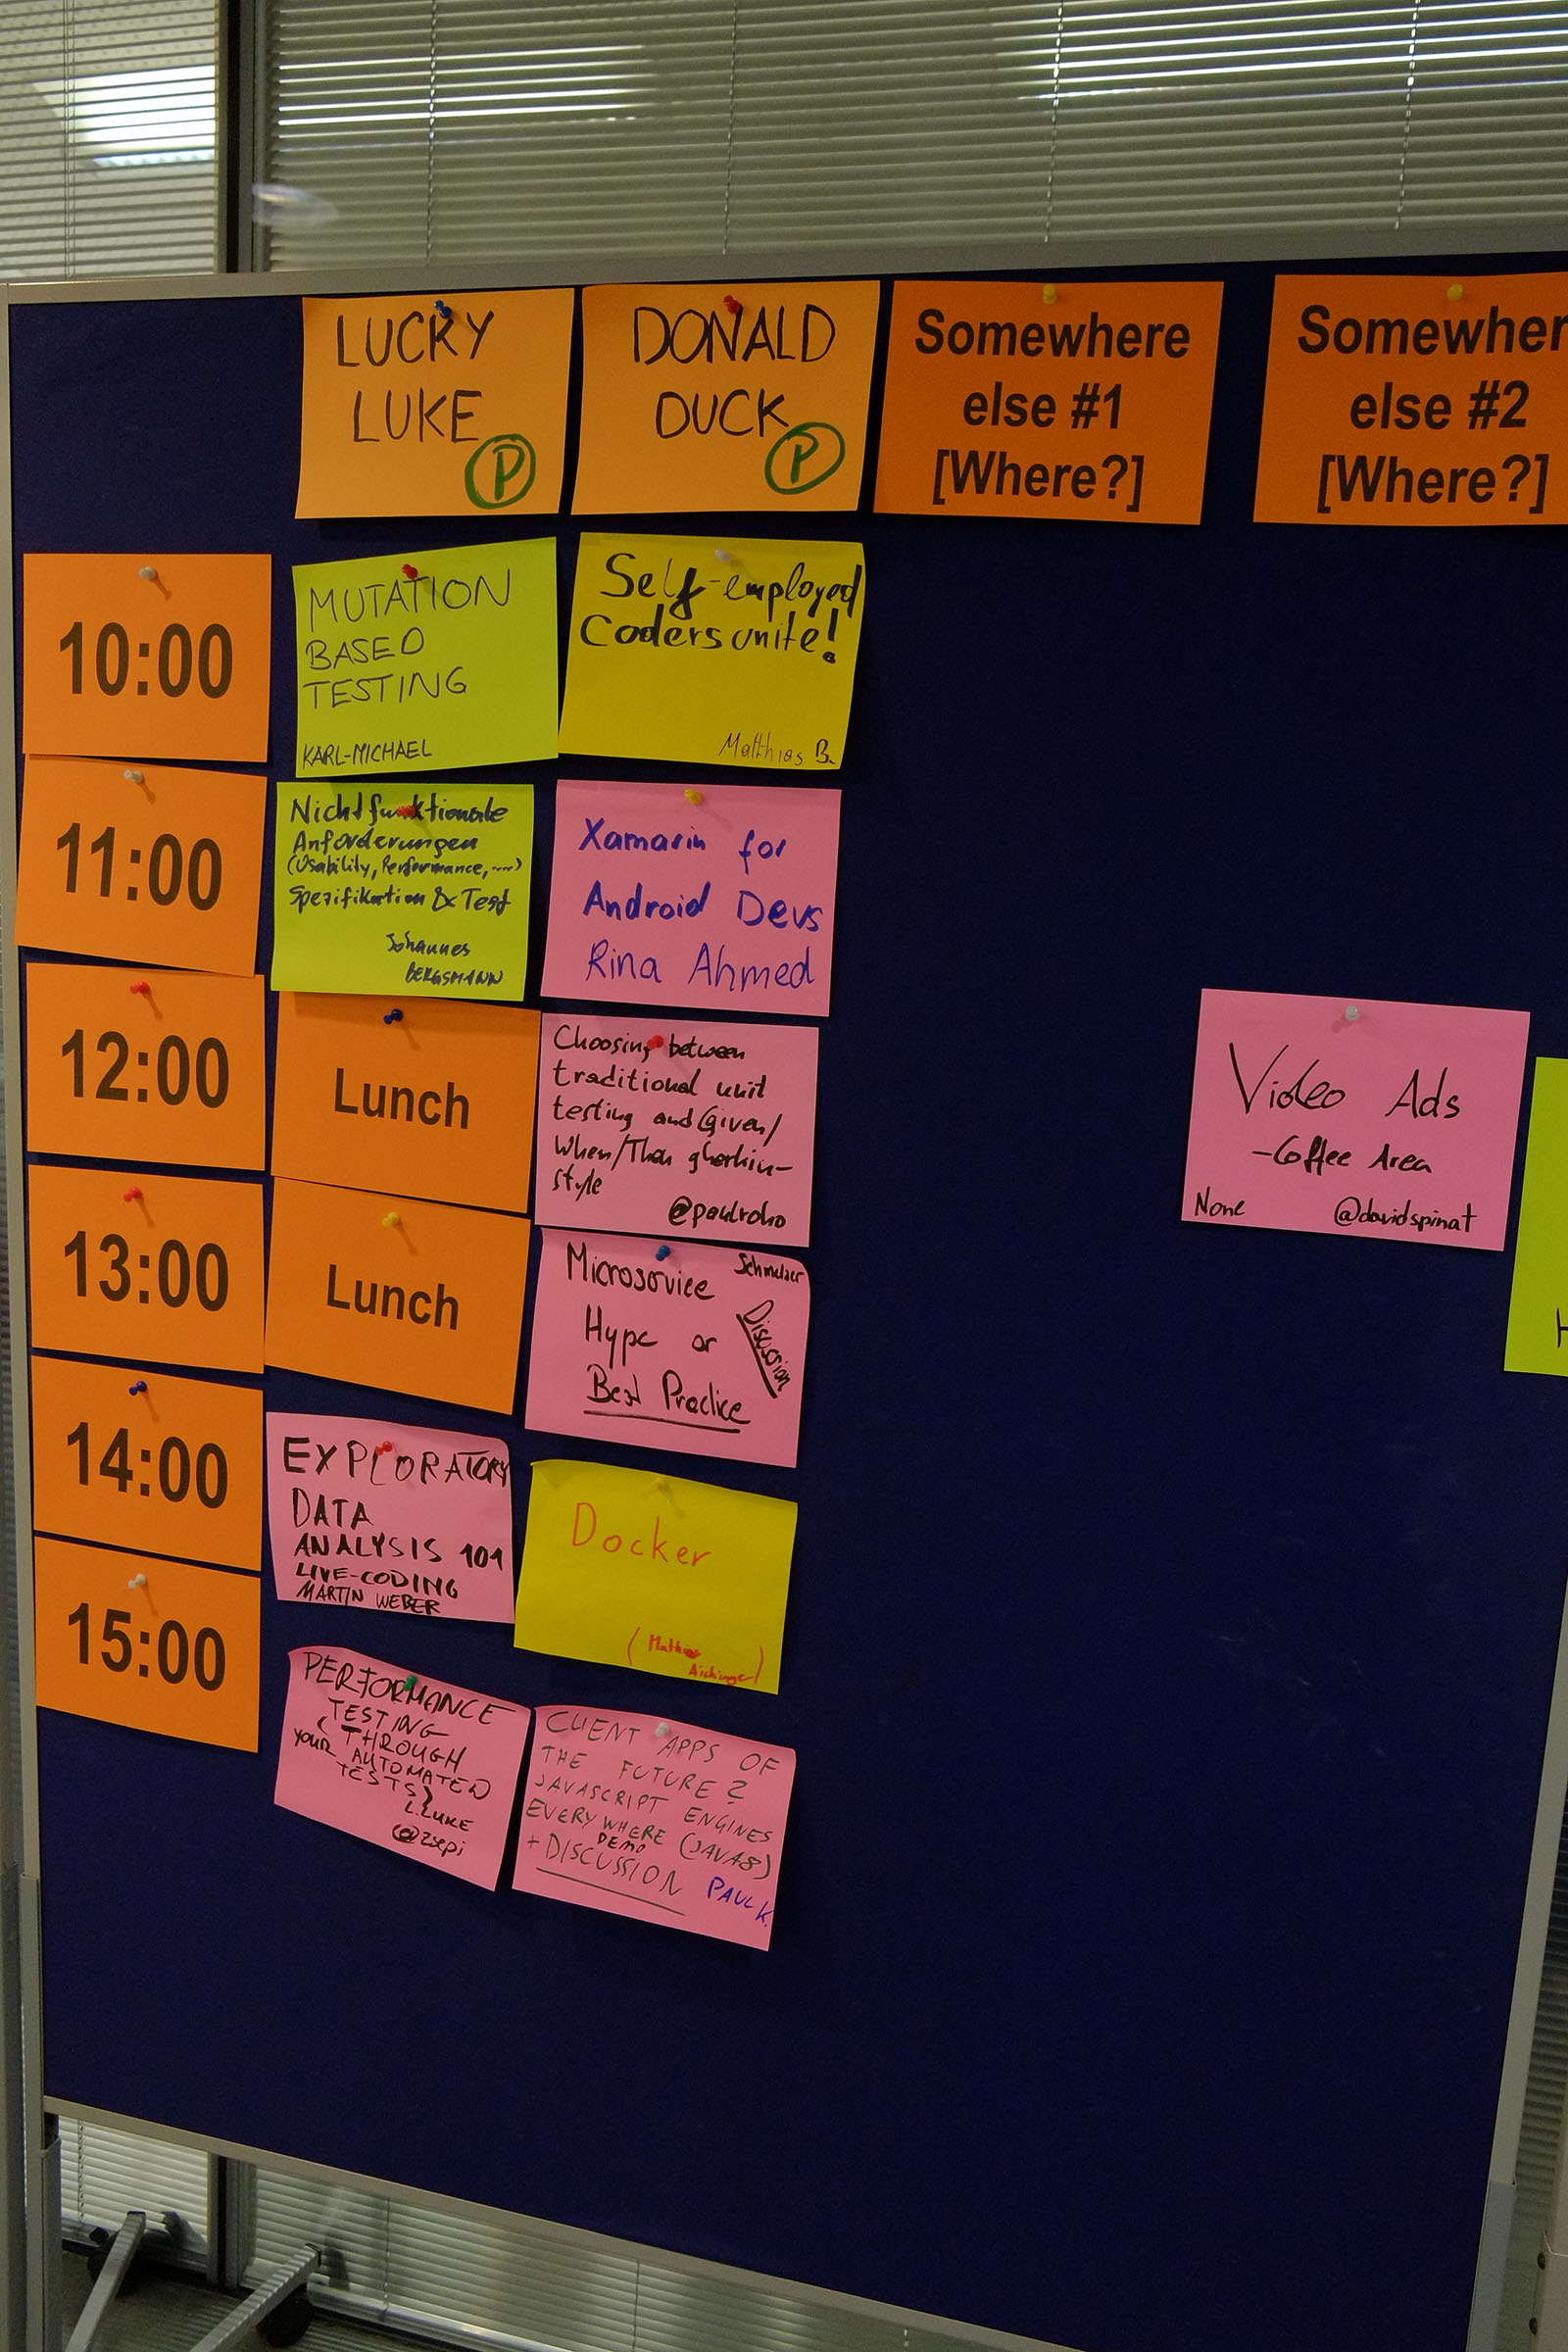 LUCKY
LUKE
P
DONALD
DUCK
P
Somewhere
else #1
[Where?]
Somewher
else #2
[Where?]
10:00
MUTATION
BASED
TESTING
KARL-MICHAEL
Self-employed
Coders unite!
Matthias B.
11:00
Nichtfunktionale
Anforderungen
(Usability, Performance, ....)
Spezifikation & Test
Johannes
BERGSMANN
Xamarin for
Android Devs
Rina Ahmed
12:00
Lunch
Choosing between
traditional unit
testing and Given/
When/Then gherkin-
style
@paulroho
Video Ads
-Coffee Area
None @davidspinat
13:00
Lunch
Microservice
Schmelzer
Hype or
Discussion
Best Practice
H
14:00
EXPLORATORY
DATA
ANALYSIS 101
LIVE-CODING
MARTIN WEBER
Docker
(Matthias
Aichinger)
15:00
PERFORMANCE
TESTING
(THROUGH
YOUR AUTOMATED
TESTS)
L.LUKE
@zsepi
CLIENT APPS OF
THE FUTURE?
JAVASCRIPT ENGINES
EVERYWHERE (JAVA8)
DEMO
+ DISCUSSION
PAUL K.